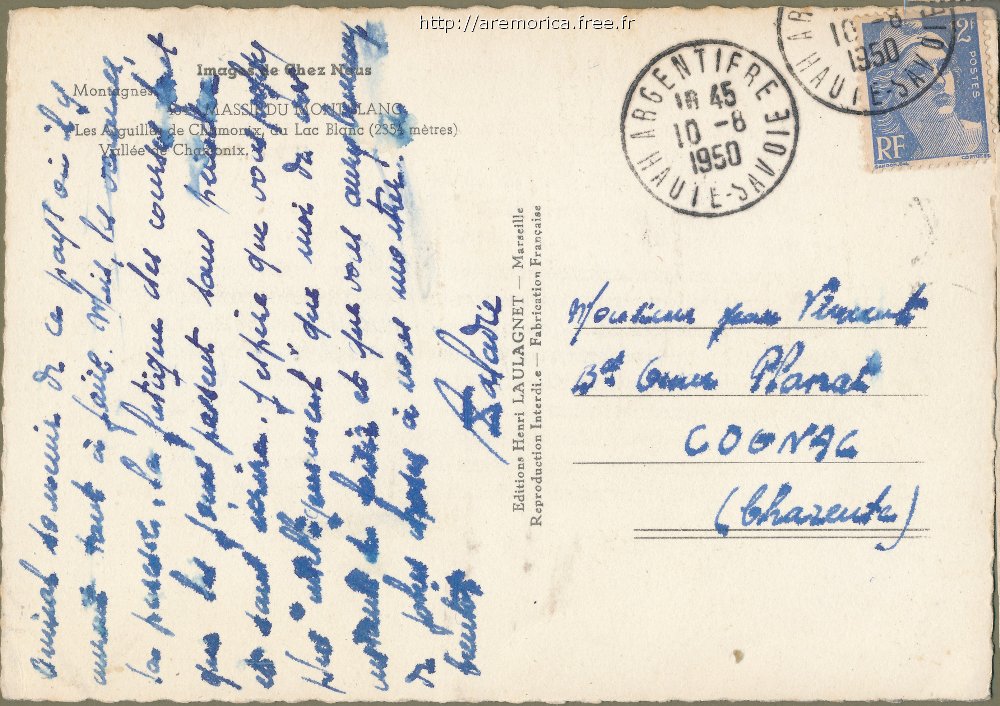 http://aremorica.free.fr
Images de Chez Nous
Montagnes
MASSIF DU MONT-BLANC
Les Aiguilles de Chamonix, du Lac Blanc (2354 mètres)
Vallée de Chamonix.
Amical souvenir de ce pays où il y
aurait tant à faire. Mais, les vacances,
la paresse, la fatigue des courses font
que les jours passent sans peindre
et sans écrire. J'espère que vous
plus que moi du
et que vous aurez beaucoup
de jolies choses à nous montrer.
bientôt
Editions Henri LAULAGNET — Marseille
Reproduction Interdite — Fabrication Française
ARGENTIERE
18 45
10 -8
1950
HAUTE-SAVOIE
10 -8
1950
HAUTE-SAVOIE
2F
POSTES
RF
Monsieur Jean Vincent
Bd Oscar Planat
COGNAC
(Charente)